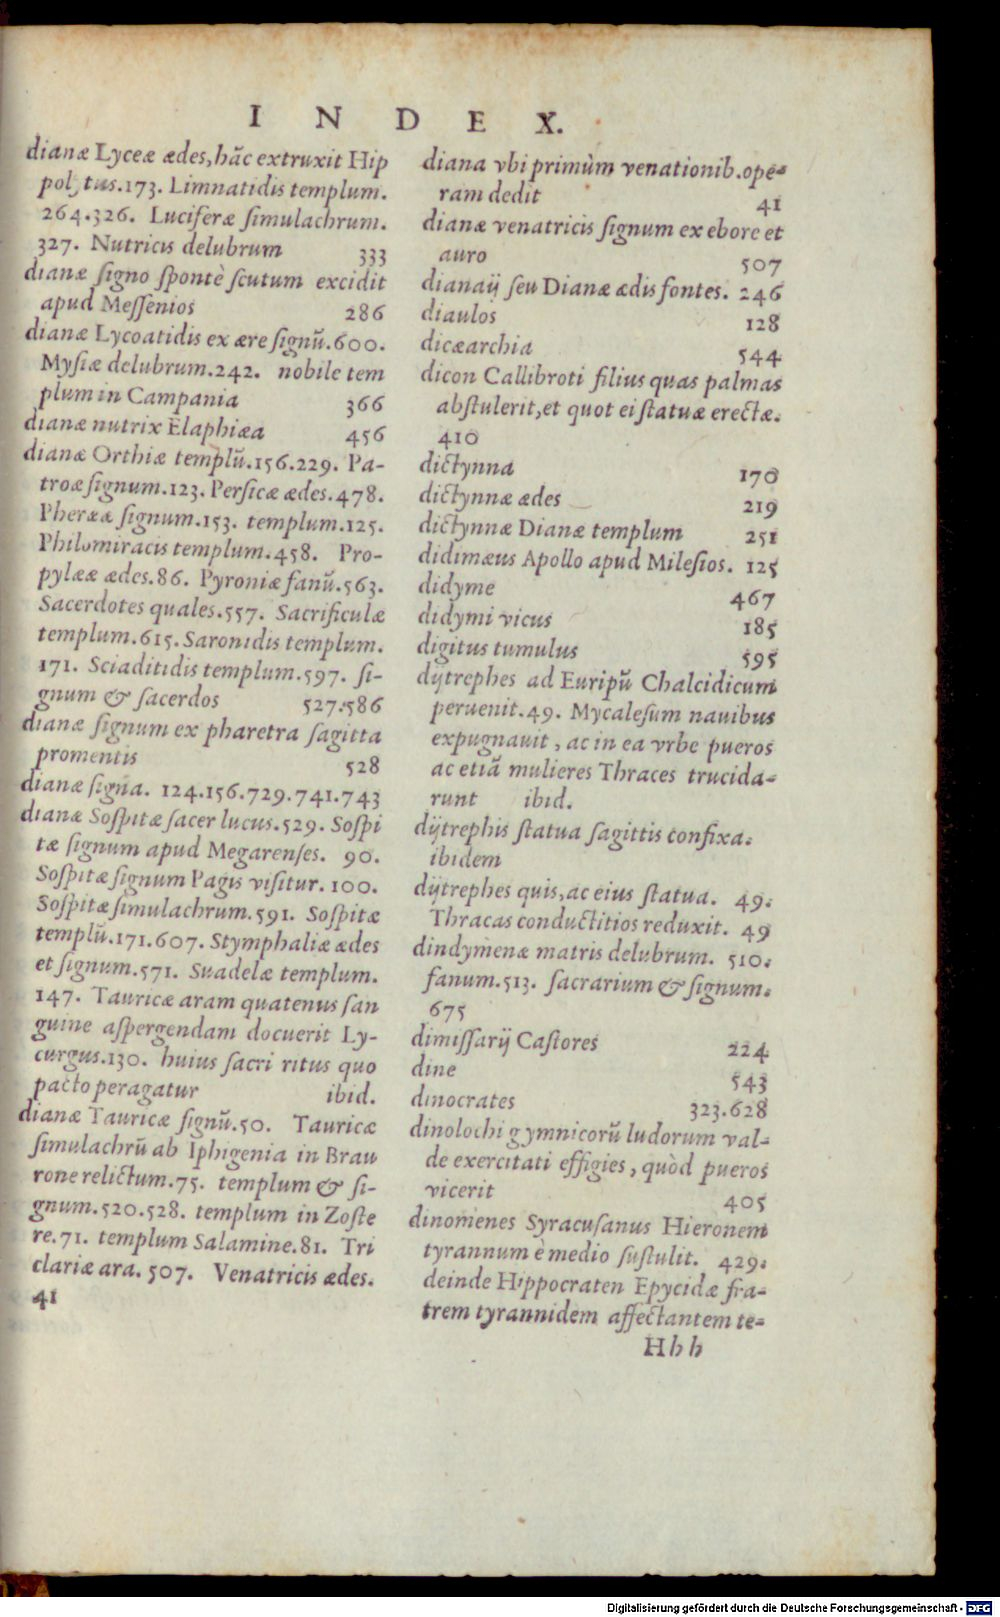 INDEX.
dianæ Lyceæ ædes, hãc extruxit Hip
polytus.173. Limnatidis templum.
264.326. Luciferæ simulachrum.
327. Nutricis delubrum 333
dianæ signo spontè scutum excidit
apud Messenios 286
dianæ Lycoatidis ex ære signũ.600.
Mysiæ delubrum.242. nobile tem
plum in Campania 366
dianæ nutrix Elaphiæa 456
dianæ Orthiæ templũ.156.229. Pa-
troæ signum.123. Persicæ ædes.478.
Pherææ signum.153. templum.125.
Philomiracis templum.458. Pro-
pylææ ædes.86. Pyroniæ fanũ.563.
Sacerdotes quales.557. Sacrificulæ
templum.615. Saronidis templum.
171. Sciaditidis templum.597. si-
gnum & sacerdos 527.586
dianæ signum ex pharetra sagitta
promentis 528
dianæ signa. 124.156.729.741.743
dianæ Sospitæ sacer lucus.529. Sospi
tæ signum apud Megarenses. 90.
Sospitæ signum Pagis visitur. 100.
Sospitæ simulachrum.591. Sospitæ
templũ.171.607. Stymphaliæ ædes
et signum.571. Suadelæ templum.
147. Tauricæ aram quatenus san
guine aspergendam docuerit Ly-
curgus.130. huius sacri ritus quo
pacto peragatur ibid.
dianæ Tauricæ signũ.50. Tauricæ
simulachrũ ab Iphigenia in Brau
rone relictum.75. templum & si-
gnum.520.528. templum in Zoste
re.71. templum Salamine.81. Tri
clariæ ara. 507. Venatricis ædes.
41
diana vbi primùm venationib. ope-
ram dedit 41
dianæ venatricis signum ex ebore et
auro 507
dianaij seu Dianæ ædis fontes. 246
diaulos 128
dicæarchia 544
dicon Callibroti filius quas palmas
abstulerit, et quot ei statuæ erectæ.
410
dictynna 170
dictynnæ ædes 219
dictynnæ Dianæ templum 251
didimæus Apollo apud Milesios. 125
didyme 467
didymi vicus 185
digitus tumulus 595
dijtrephes ad Euripũ Chalcidicum
peruenit.49. Mycalesum nauibus
expugnauit, ac in ea vrbe pueros
ac etiã mulieres Thraces trucida-
runt ibid.
dijtrephis statua sagittis confixa.
ibidem
dijtrephes quis, ac eius statua. 49.
Thracas conductitios reduxit. 49
dindymenæ matris delubrum. 510.
fanum.513. sacrarium & signum.
675
dimissarij Castores 224
dine 543
dinocrates 323.628
dinolochi gymnicorũ ludorum val-
de exercitati effigies, quòd pueros
vicerit 405
dinomenes Syracusanus Hieronem
tyrannum è medio sustulit. 429.
deinde Hippocraten Epycidæ fra-
trem tyrannidem affectantem te-
Hhh
Digitalisierung gefördert durch die Deutsche Forschungsgemeinschaft - DFG